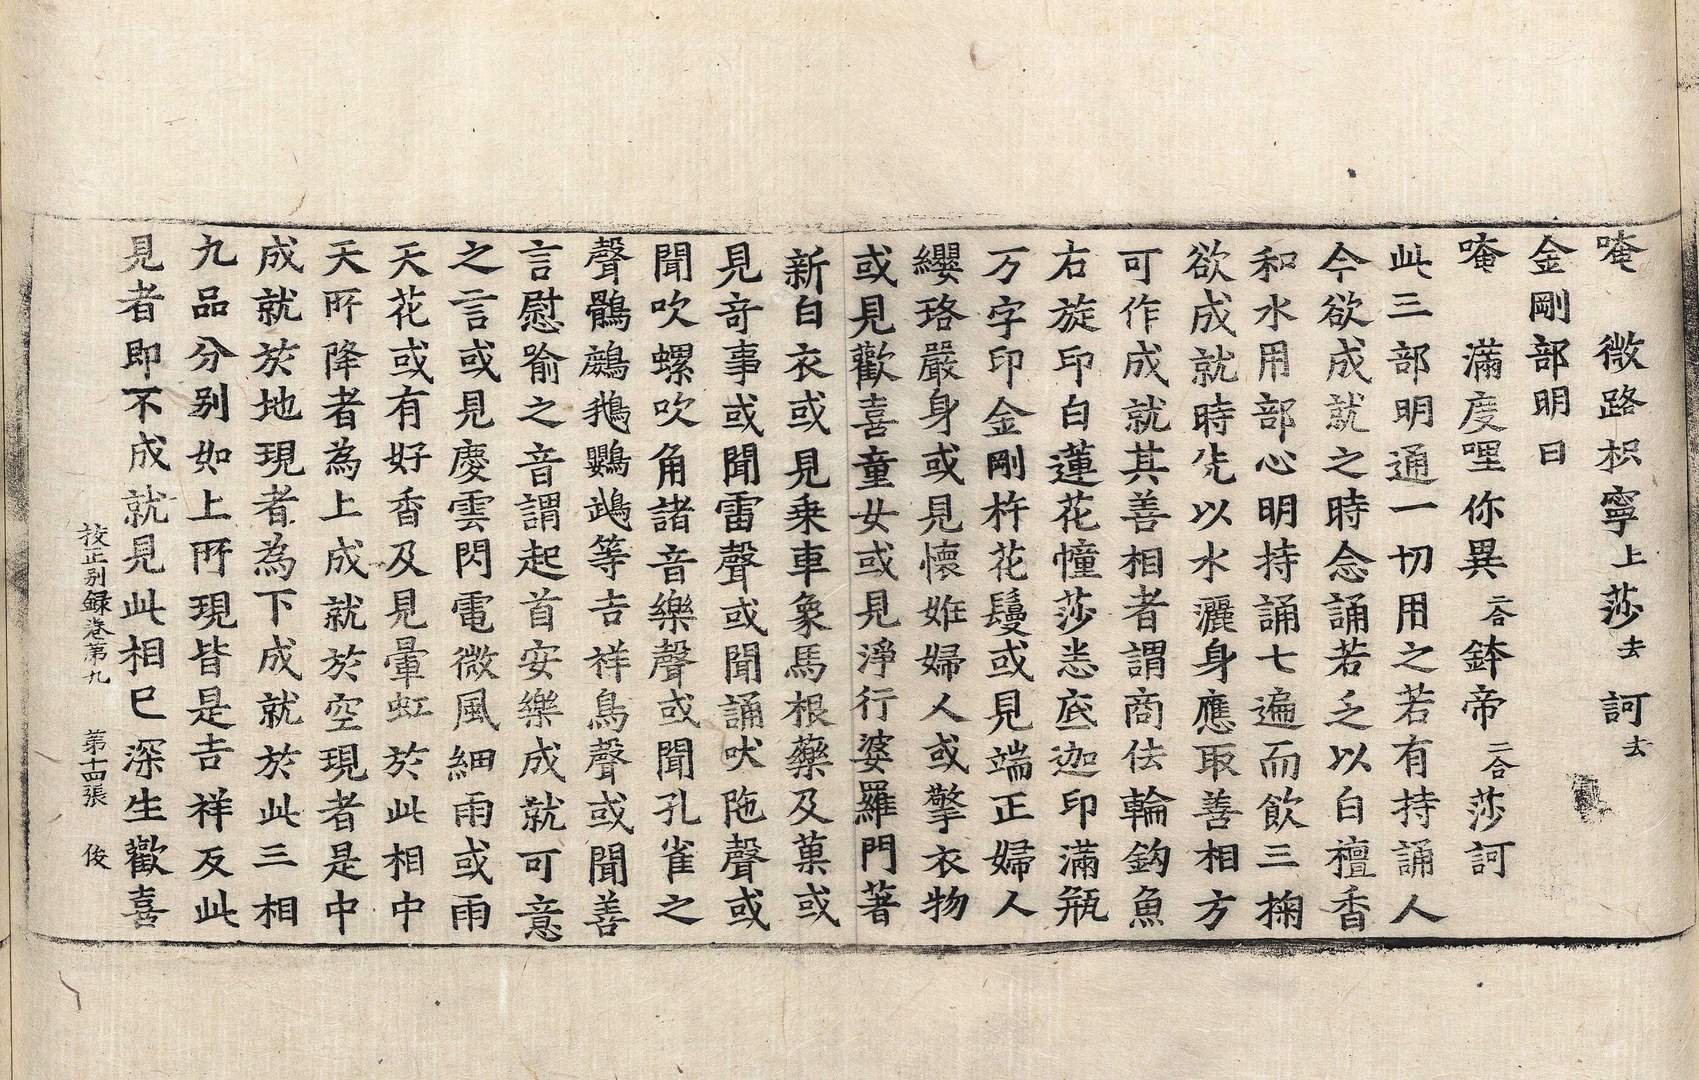 唵　微路枳寧上莎去訶去
金剛部明曰
唵　滿度哩你異二合鉢帝二合莎訶
此三部明通一切用之若有持誦人
今欲成就之時念誦若乏以白檀香
和水用部心明持誦七遍而飲三掬
欲成就時先以水灑身應取善相方
可作成就其善相者謂商佉輪鉤魚
右旋印白蓮花幢莎悉底迦印滿瓶
万字印金剛杵花鬘或見端正婦人
纓珞嚴身或見懷妊婦人或擎衣物
或見歡喜童女或見淨行婆羅門著
新白衣或見乗車象馬根藥及菓或
見竒事或聞雷聲或聞誦吠陁聲或
聞吹螺吹角諸音樂聲或聞孔雀之
聲鶻鸕鵝鸚鵡等吉祥鳥聲或聞善
言慰喻之音謂起首安樂成就可意
之言或見慶雲閃電微風細雨或雨
天花或有好香及見暈虹於此相中
天所降者為上成就於空現者是中
成就於地現者為下成就於此三相
九品分別如上所現皆是吉祥反此
見者即不成就見此相已深生歡喜
挍正別録卷第九　第十四張　俊